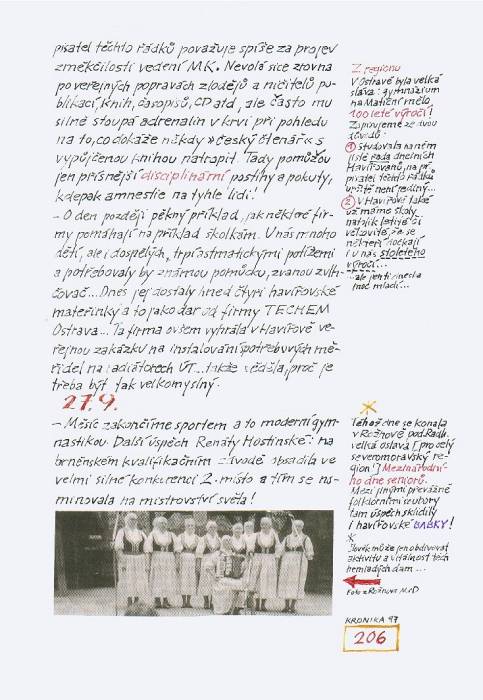 pisatel těchto řádků považuje spíše za projev
změkčilosti vedení MK. Nevolá sice zrovna
po veřejných popravách zlodějů a ničitelů pu-
blikací, knih, časopisů, CD atd, ale často mu
silně stoupá adrenalin v krvi při pohledu
na to, co dokáže někdy »český čtenář« s
vypůjčenou knihou natropit. Tady pomůžou
jen přísnější disciplinární postihy a pokuty,
kdepak amnestie na tyhle lidi!
– O den později pěkný příklad, jak některé fir-
my pomáhají na příklad školkám. U nás mnoho
dětí, ale i dospělých, trpí astmatickými potížemi
a potřebovaly by známou pomůcku, zvanou zvlh-
čovač... Dnes jej dostaly hned čtyři havířovské
mateřinky a to jako dar od firmy TECHEM
Ostrava... Ta firma ovšem vyhrála v Havířově ve-
řejnou zakázku na instalování potřebných mě-
řidel na radiátorech ÚT... takže věděla, proč je
třeba být tak velkomyslný.
27.9.
– Měsíc zakončíme sportem a to moderní gym-
nastikou. Další úspěch Renáty Hostinské: na
brněnském kvalifikačním závodě obsadila ve
velmi silné konkurenci 2. místo a tím se no-
minovala na mistrovství světa!
Z regionu
V Ostravě byla velká
sláva: gymnázium
na Matiční mělo
100 leté výročí!
Zapisujeme ze dvou
důvodů:
1 Studovala na něm
jistě řada dnešních
Havířovanů, na př.
pisatel těchto řádků
určitě není jediný...
2 V Havířově také
už máme školy
natolik letité či
věkovité, že se
někteří dočkají
i u nás stoletého
výročí...
...ale jen ti dnes la
moc mladí...
Téhož dne se konala
v Rožnově pod Radh.
velká oslava [pro celý
severomoravský re-
gion!] Mezinárodní-
ho dne seniorů.
Mezi jinými převážně
folklorními soubory
tam úspěch sklidily
i havířovské BABKY!
Člověk může jen obdivovat
aktivitu a vitálnost těch
nemladých dam...
Foto z Rožnova
KRONIKA 97
206